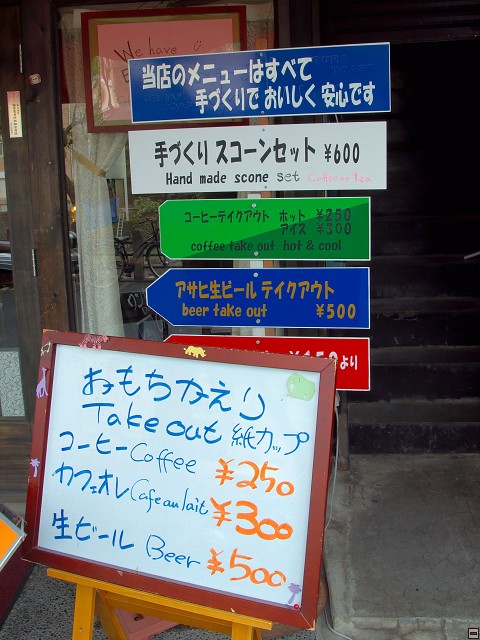 We have
当店のメニューはすべて
手づくりで おいしく 安心です
手づくり スコーンセット ¥600
Hand made scone set Coffee or Tea
コーヒーテイクアウト ホット ¥250
アイス ¥300
coffee take out hot & cool
アサヒ生ビール テイクアウト
beer take out ¥500
より
おもちかえり
Take out 紙カップ
コーヒー Coffee ¥250
カフェオレ Cafe au lait ¥300
生ビール Beer ¥500